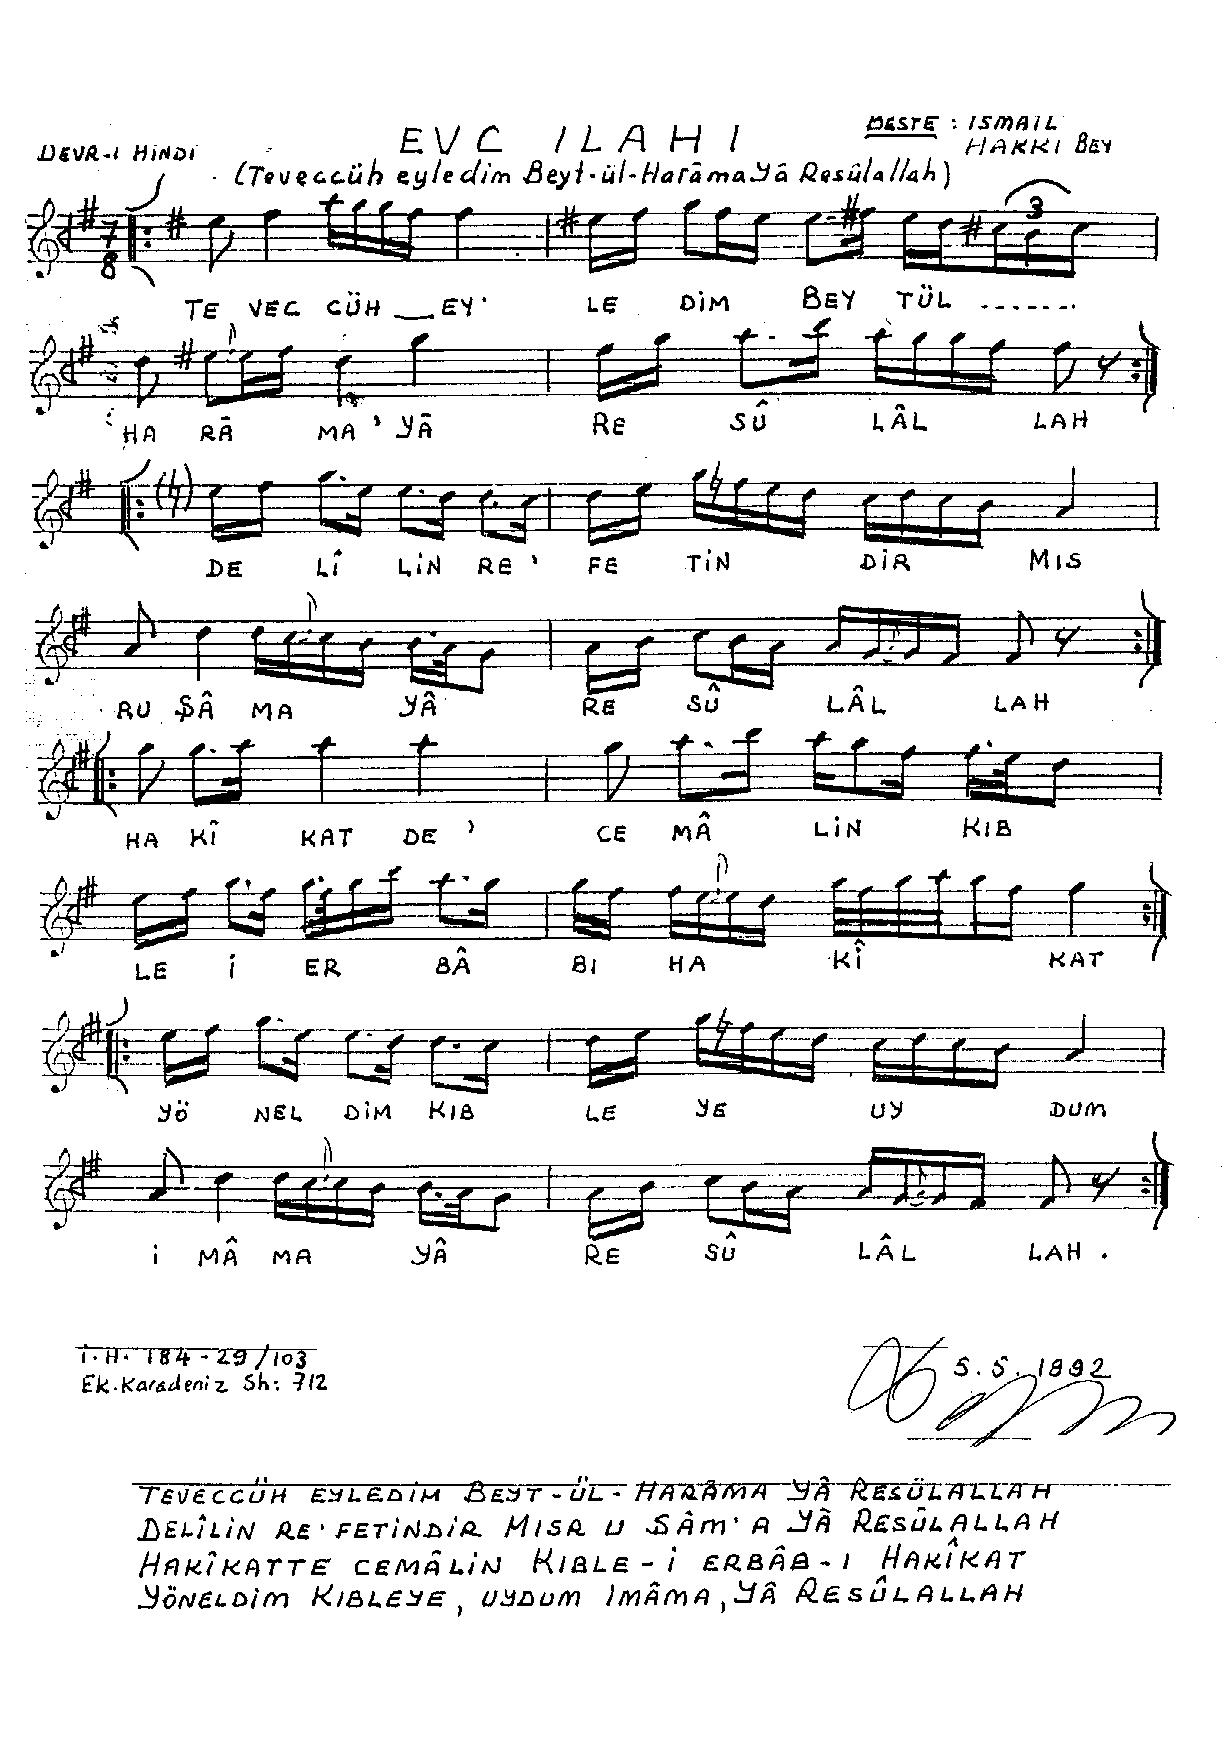 EVC ILAHI
BESTE : ISMAIL
HAKKI BEY
DEVR-I HİNDİ
(Teveccüh eyledim Beyt-ül-Harâma Yâ Resûlallah)
7
8
3
TE VEC CÜH __ EY' LE DİM BEY TÜL .......
HA RÂ MA ' YÂ RE SÛ LÂL LAH
DE Lİ LİN RE ' FE TİN DİR MIS
RU ŞÂ MA YÂ RE SÛ LÂL LAH
HA KÎ KAT DE ' CE MÂ LİN KIB
LE İ ER BÂ BI HA KÎ KAT
YÖ NEL DİM KIB LE YE UY DUM
İ MÂ MA YÂ RE SÛ LÂL LAH .
İ.H. 184-29/103
Ek.Karadeniz Sh: 712
5.5.1992
TEVECCÜH EYLEDİM BEYT-ÜL-HARÂMA YÂ RESÛLALLAH
DELÎLİN RE'FETİNDİR MISR U ŞÂM'A YÂ RESÛLALLAH
HAKÎKATTE CEMÂLİN KIBLE-İ ERBÂB-I HAKÎKAT
YÖNELDİM KIBLEYE, UYDUM IMÂMA, YÂ RESÛLALLAH